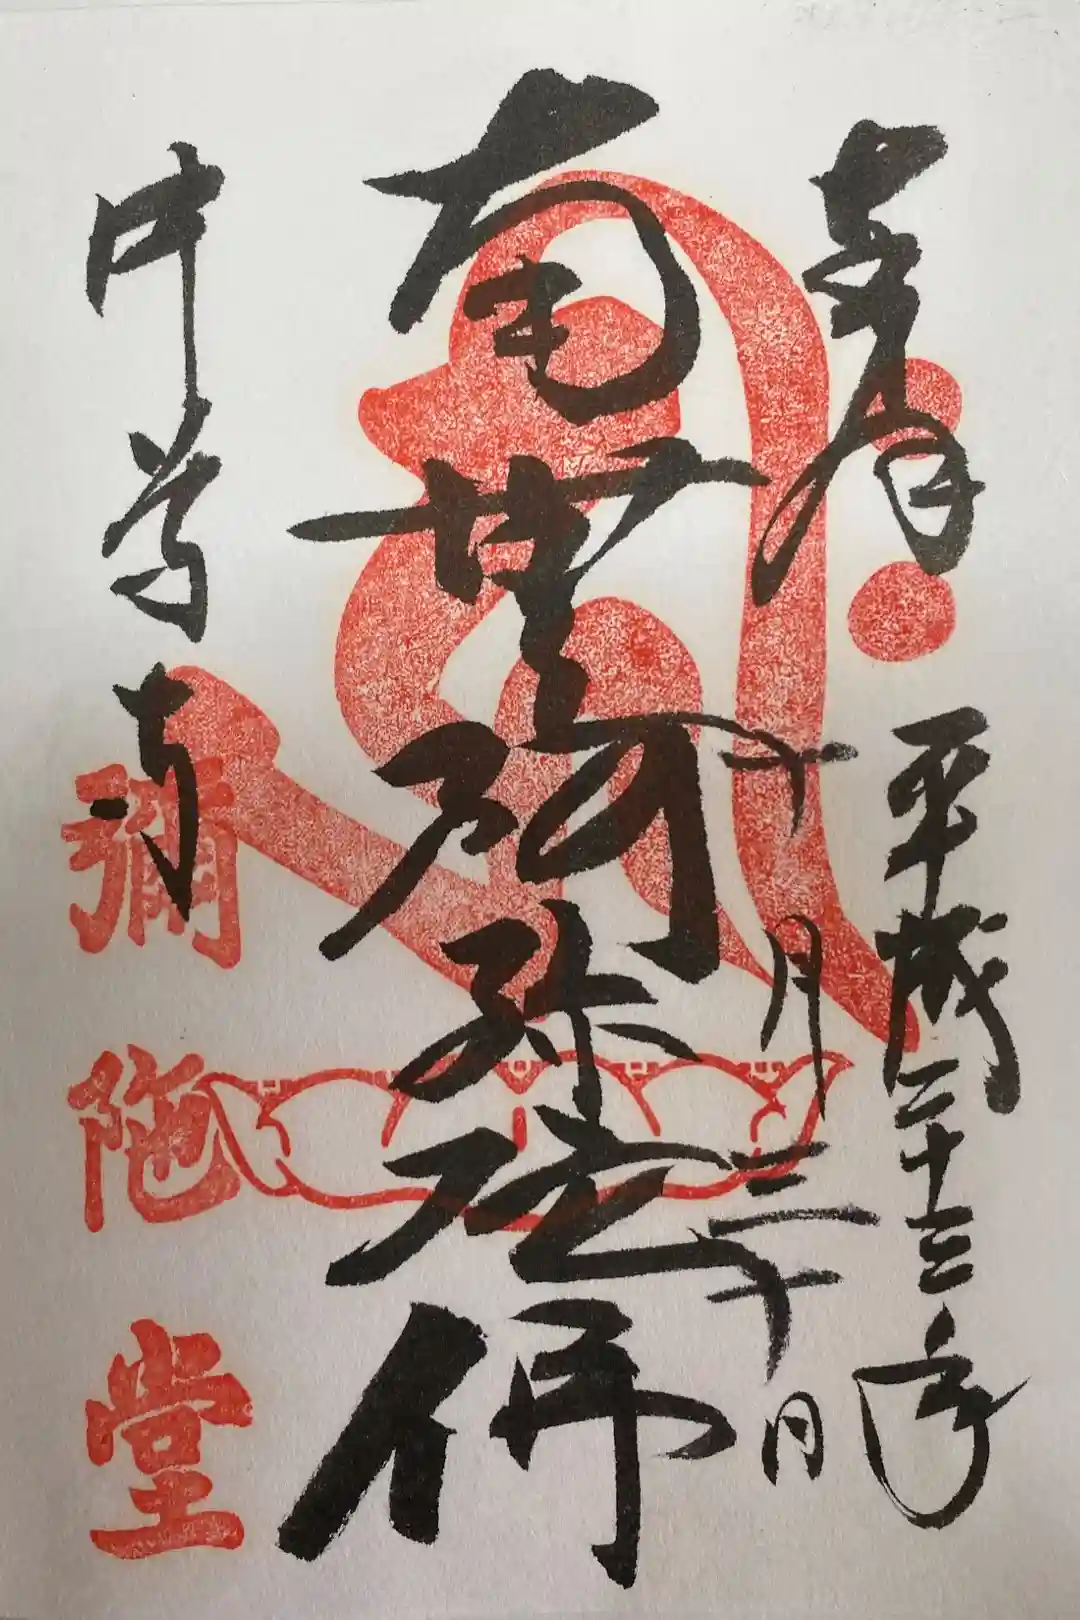 奉拝
平成二十三年
十月三十日
南無阿弥陀佛
中尊寺
彌陀堂